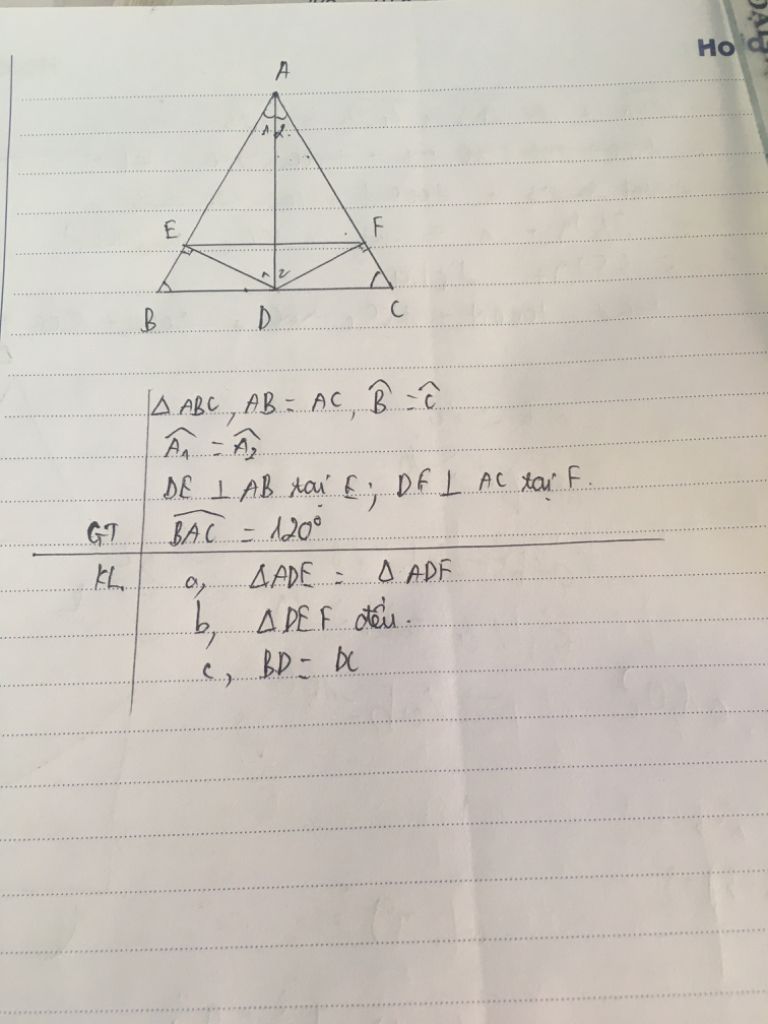 Ho
A
1 2
E F
1 2
B D C
Δ ABC, AB = AC, B̂ = Ĉ
Â₁ = Â₂
DE ⊥ AB tại E; DF ⊥ AC tại F.
GT BAC = 120°
KL a, ΔADE = ΔADF
b, ΔDEF đều.
c, BD = DC